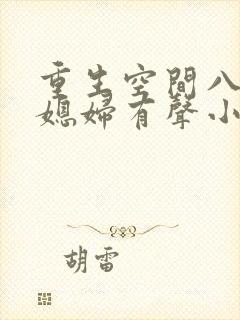 重生空間八
媳婦有聲小
胡雷